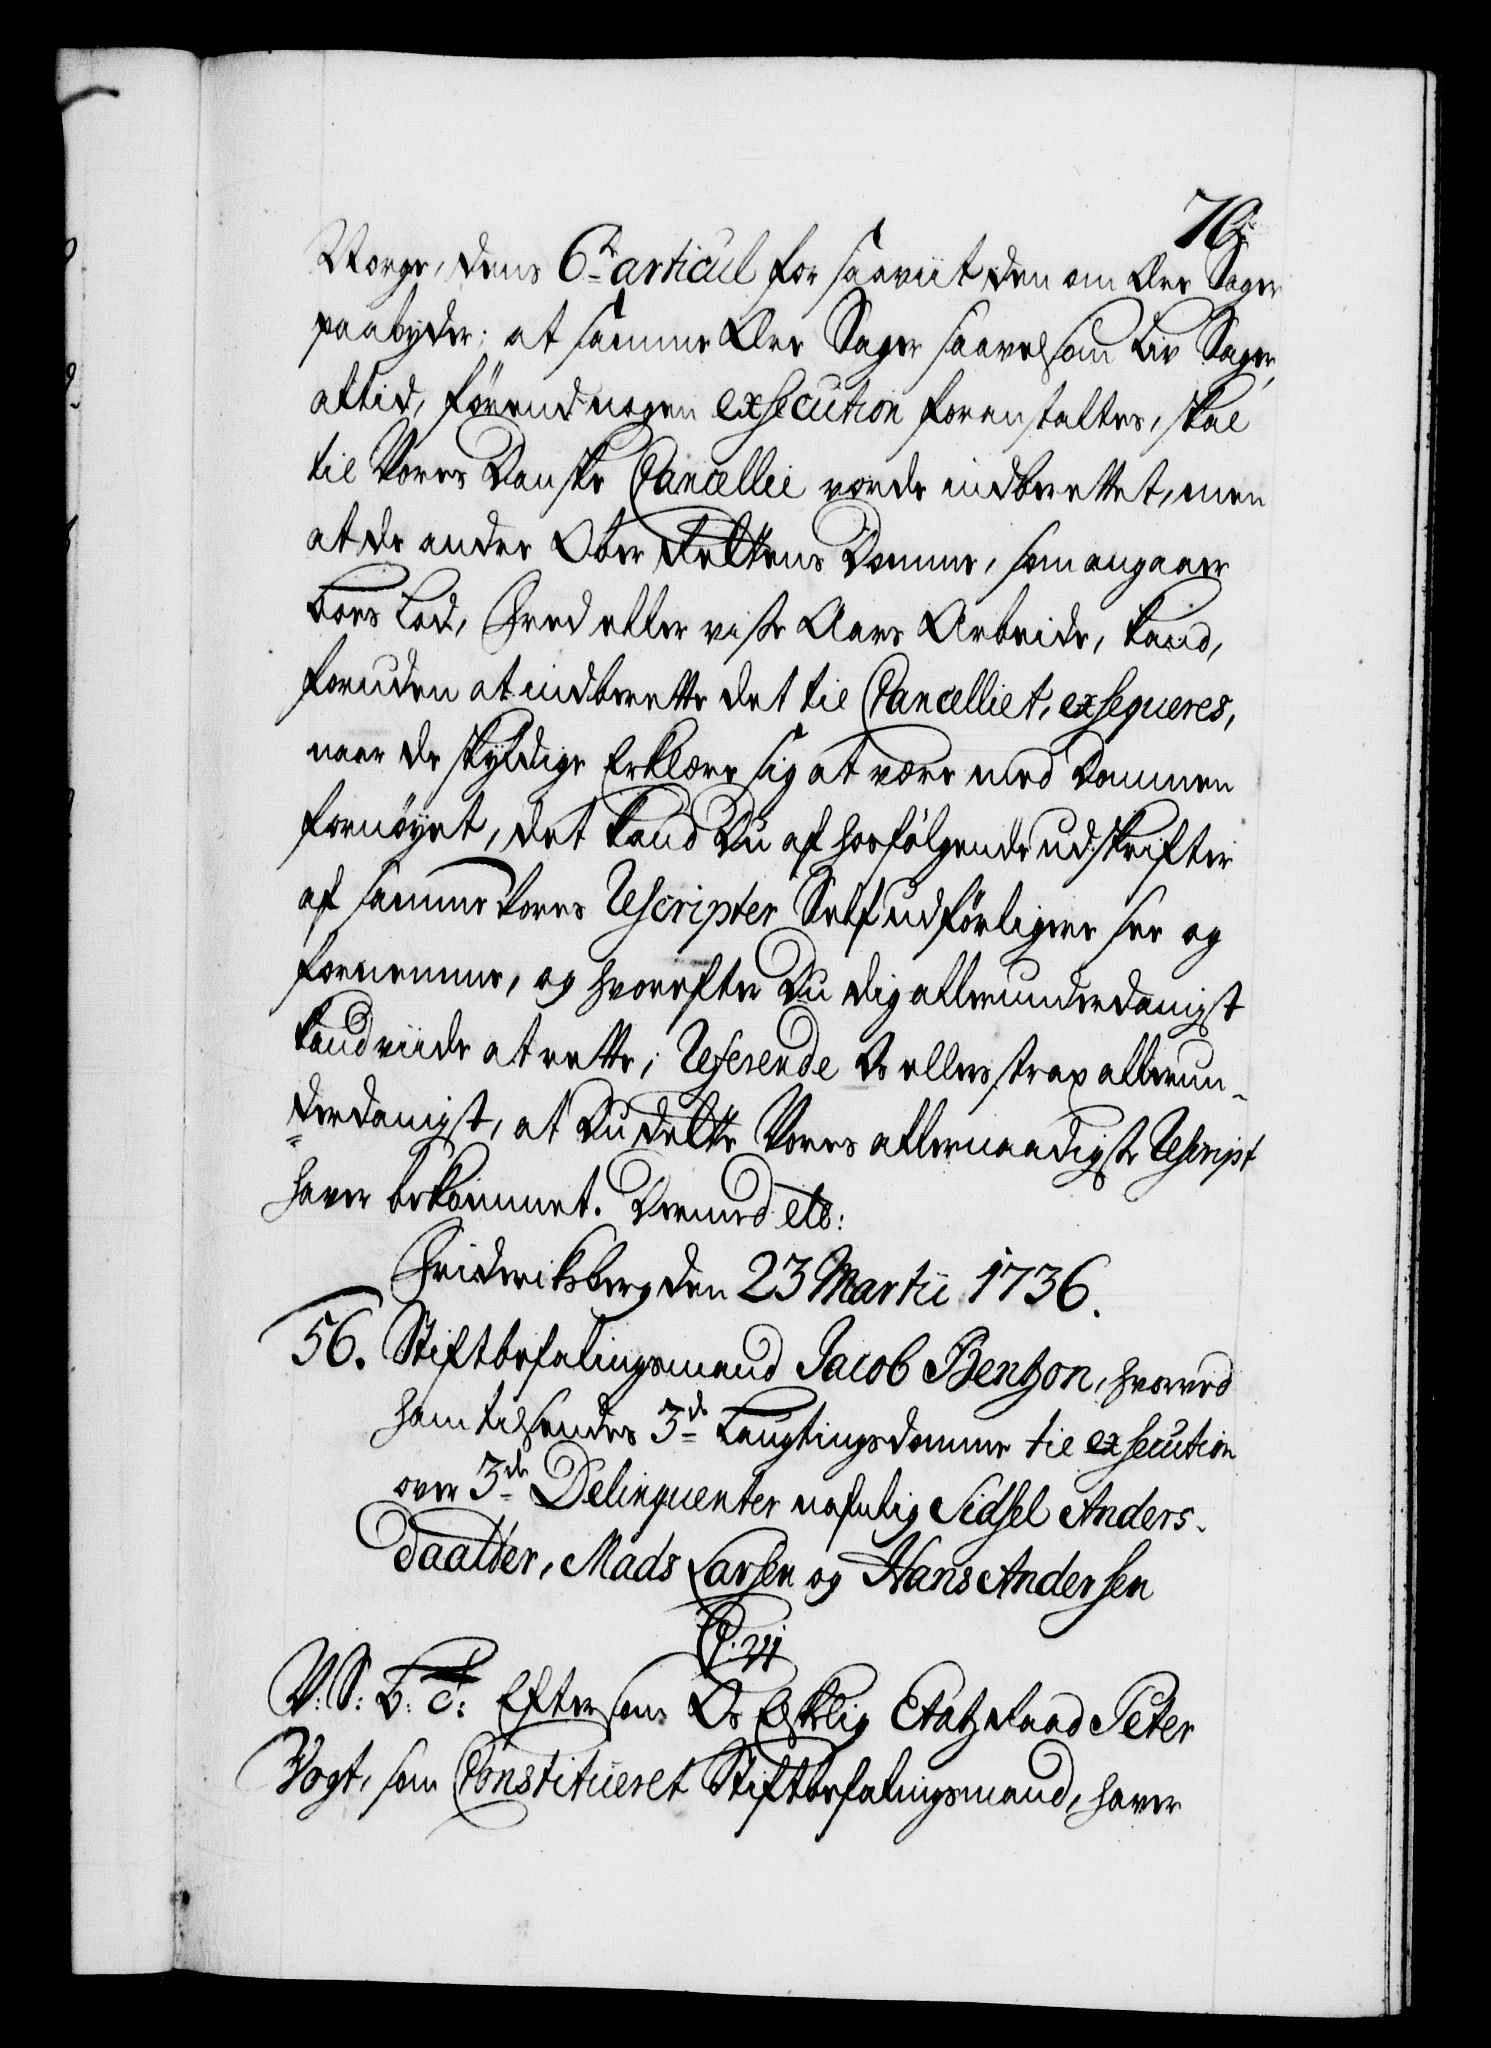 70.
Norge, dens 6te articul for saaviit den om Ære Sager
paabyder; at samme Ære Sager saavelsom Liv Sager,
altid, förend nogen exsecution foranstaltes, skal
til Vores Danske Cancellie vorde indberettet, men
at de andre Ober Rettens Domme, som angaaer
Fred eller visse Aars Arbeide, kand,
foruden at indberette det til Cancelliet, exseqveres,
naar de skyldige Erklære sig at være med Dommen
fornöyet, det kand Du af hosfölgende udskrifter
af samme Vores Rescripter Self udförligere see og
fornemme, og hvorefter Du dig allerunderdanigst
kand viide at rette; Referende Os ellers strax allerun-
derdanigst, at Du dette Vores allernaadigste Rescript
haver bekommet. Dermed etc:
Friderichsberg den 23 Martii 1736.
56. Stiftbefalingsmand Jacob Bentzon, hvorved
ham tilsendes 3de Laugtingsdomme til exsecution
over 3de Delinquenter nafnlig Sidsel Anders-
daatter, Mads Larsen og Hans Andersen
C. VI
V: S: B: T: Eftersom Os Elskelig Etatzraad Peter
Vogt, som Constitueret Stiftbefalingsmand, haver